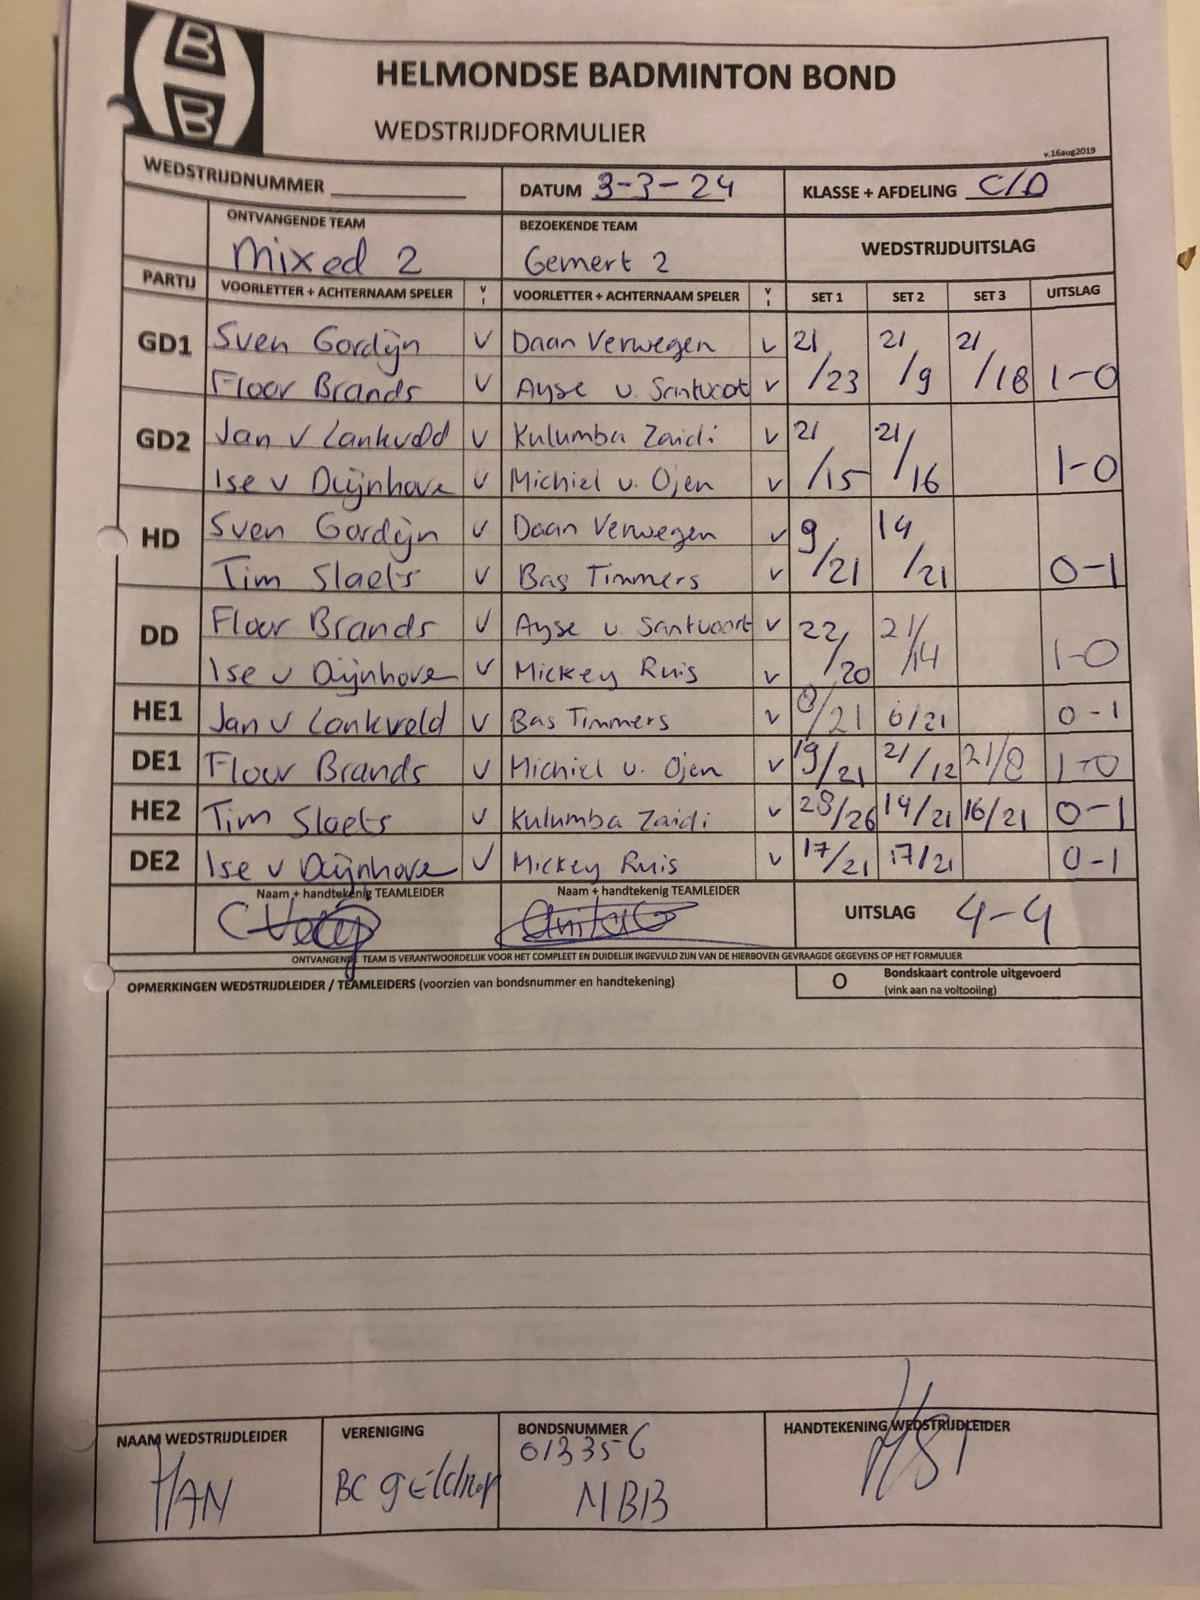 B
B
HELMONDSE BADMINTON BOND
WEDSTRIJDFORMULIER
v.16aug2019
WEDSTRIJDNUMMER DATUM 3-3-24 KLASSE + AFDELING C/D
ONTVANGENDE TEAM BEZOEKENDE TEAM WEDSTRIJDUITSLAG
Mixed 2 Gemert 2
PARTIJ VOORLETTER + ACHTERNAAM SPELER V I VOORLETTER + ACHTERNAAM SPELER V I SET 1 SET 2 SET 3 UITSLAG
GD1 Sven Gordijn V Daan Verwegen V 21/23 21/9 21/18 1-0
Floor Brands V Ayse v. Santvoort V
GD2 Jan v Lankveld V Kulumba Zaidi V 21/15 21/16 1-0
Ise v Duijnhove V Michiel v. Ojen V
HD Sven Gordijn V Daan Verwegen V 9/21 14/21 0-1
Tim Slaets V Bas Timmers V
DD Floor Brands V Ayse v Santvoort V 22/20 21/14 1-0
Ise v Duijnhove V Mickey Ruis V
HE1 Jan v Lankveld V Bas Timmers V 8/21 6/21 0-1
DE1 Floor Brands V Michiel v. Ojen V 19/21 21/12 21/8 1-0
HE2 Tim Slaets V Kulumba Zaidi V 28/26 14/21 16/21 0-1
DE2 Ise v Duijnhove V Mickey Ruis V 17/21 17/21 0-1
Naam + handtekenig TEAMLEIDER Naam + handtekenig TEAMLEIDER UITSLAG 4-4
ONTVANGEND TEAM IS VERANTWOORDELIJK VOOR HET COMPLEET EN DUIDELIJK INGEVULD ZIJN VAN DE HIERBOVEN GEVRAAGDE GEGEVENS OP HET FORMULIER
OPMERKINGEN WEDSTRIJDLEIDER / TEAMLEIDERS (voorzien van bondsnummer en handtekening) O Bondskaart controle uitgevoerd
(vink aan na voltooiing)
NAAM WEDSTRIJDLEIDER VERENIGING BONDSNUMMER HANDTEKENING WEDSTRIJDLEIDER
013356
HAN BC geldrop NBB